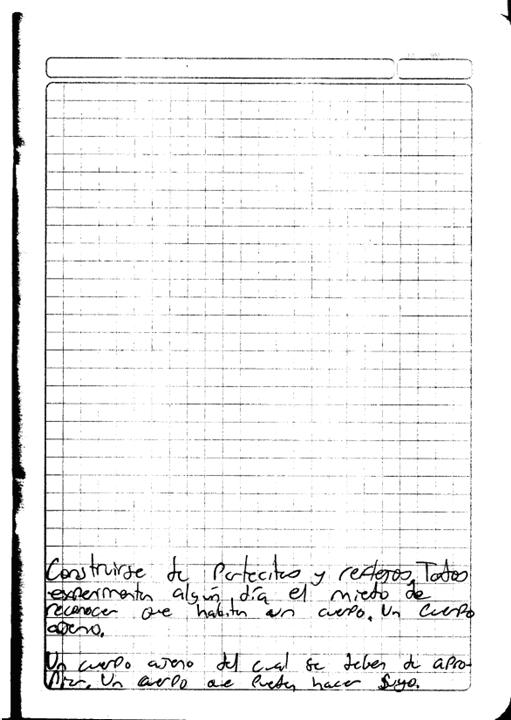 Construirse de Partecitas y reflejos. Todos
experimentan algún día el miedo de
reconocer que habitan un cuerpo. Un cuerpo
ajeno.
Un cuerpo ajeno del cual se deben de apro-
piar. Un cuerpo que pueden hacer suyo.